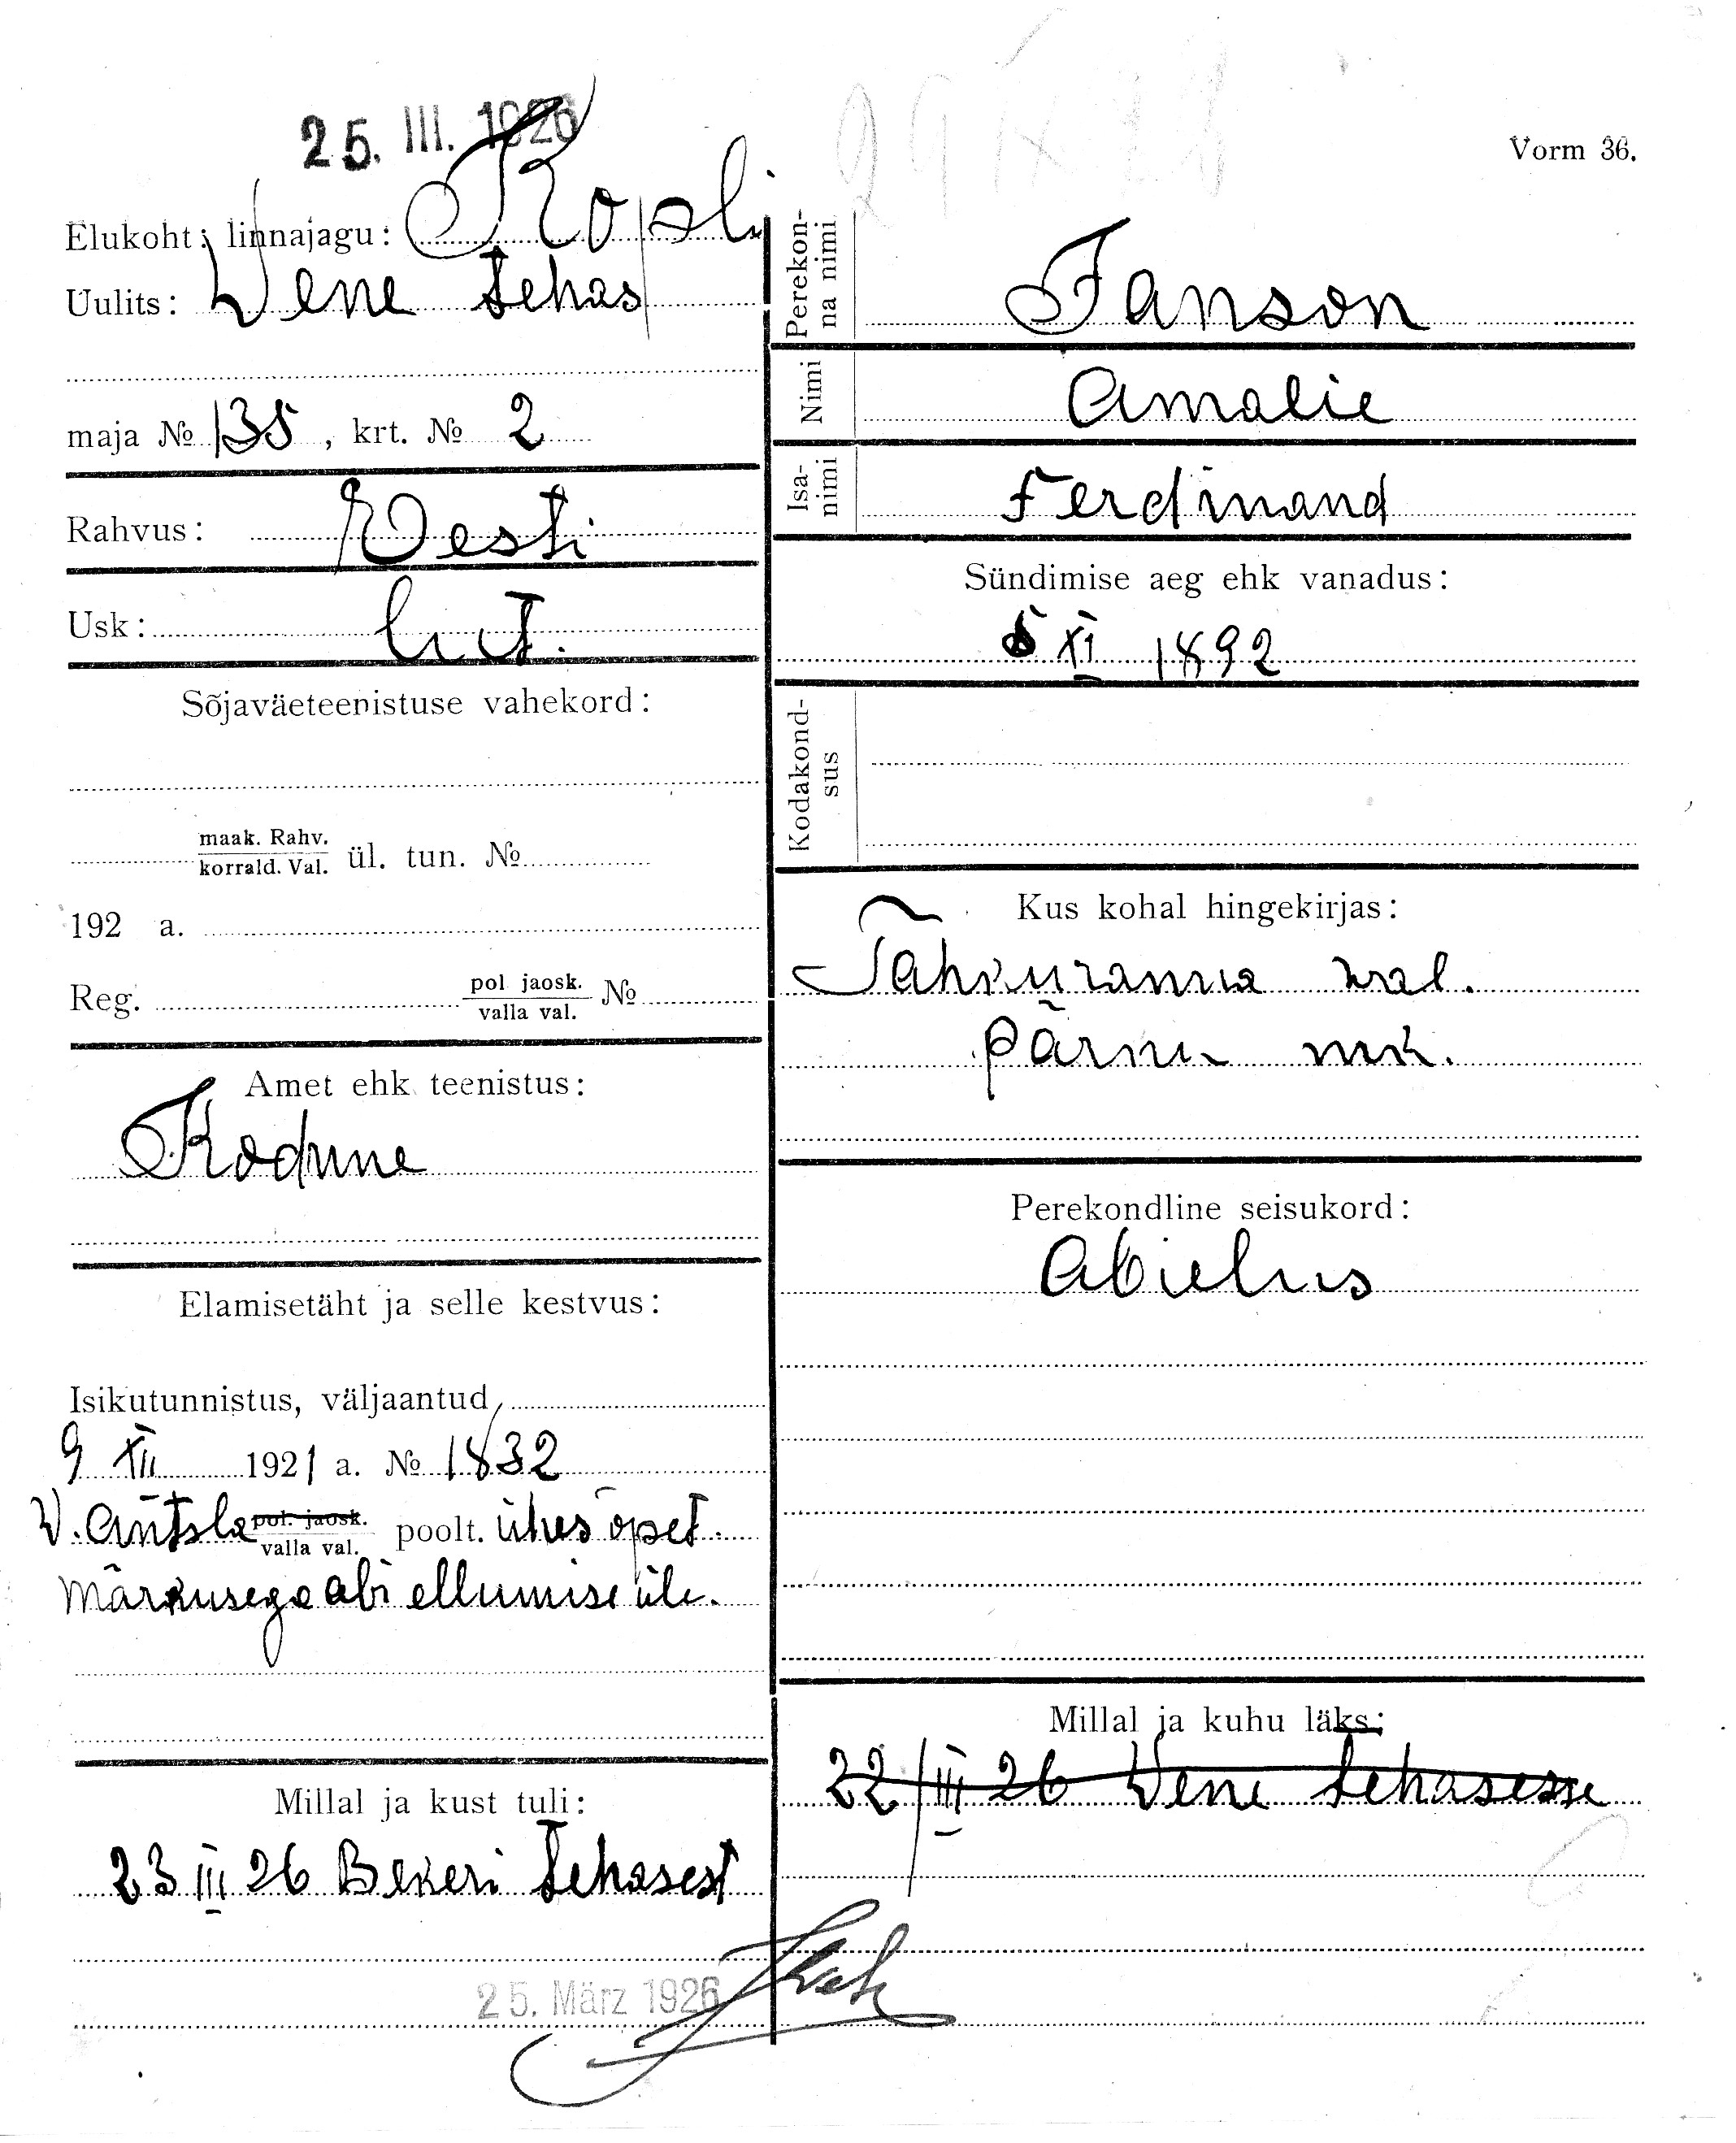 25. III. 1926
Vorm 36.
Elukoht: linnajagu: Kopli
Uulits: Vene tehas
maja № 135, krt. № 2
Rahvus: Eesti
Usk: Lut.
Sõjaväeteenistuse vahekord:
maak. Rahv.
korrald. Val. ül. tun. №
192 a.
Reg. pol jaosk.
valla val. №
Amet ehk teenistus:
Kodune
Elamisetäht ja selle kestvus:
Isikutunnistus, väljaantud
9 XII 1921 a. № 1832
V. Antsla pol. jaosk.
valla val. poolt. ühes õpet.
märkusega abiellumise üle.
Millal ja kust tuli:
23 III 26 Bekeri tehasest
25. März 1926
Perekon-
na nimi
Janson
Nimi
Amalie
Isa-
nimi
Ferdinand
Sündimise aeg ehk vanadus:
5 XI 1892
Kodakond-
sus
Kus kohal hingekirjas:
Tahkuranna val.
Pärnu mk.
Perekondline seisukord:
Abielus
Millal ja kuhu läks:
22/III 26 Vene tehasesse